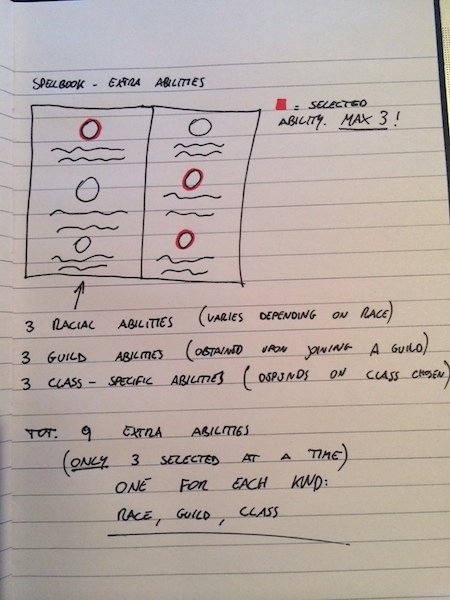 SPELLBOOK - EXTRA ABILITIES
= SELECTED
ABILITY. MAX 3!
3 RACIAL ABILITIES (VARIES DEPENDING ON RACE)
3 GUILD ABILITIES (OBTAINED UPON JOINING A GUILD)
3 CLASS-SPECIFIC ABILITIES (DEPENDS ON CLASS CHOSEN)
TOT. 9 EXTRA ABILITIES
(ONLY 3 SELECTED AT A TIME)
ONE FOR EACH KIND:
RACE, GUILD, CLASS